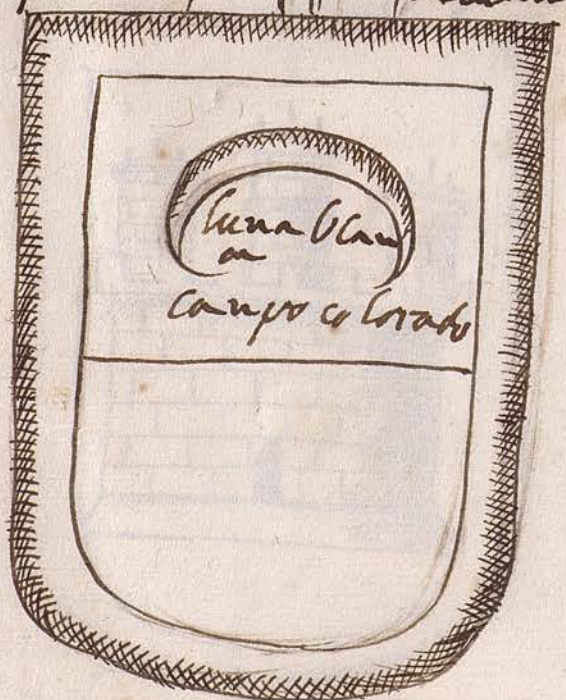 luna blan
ca
campo colorado